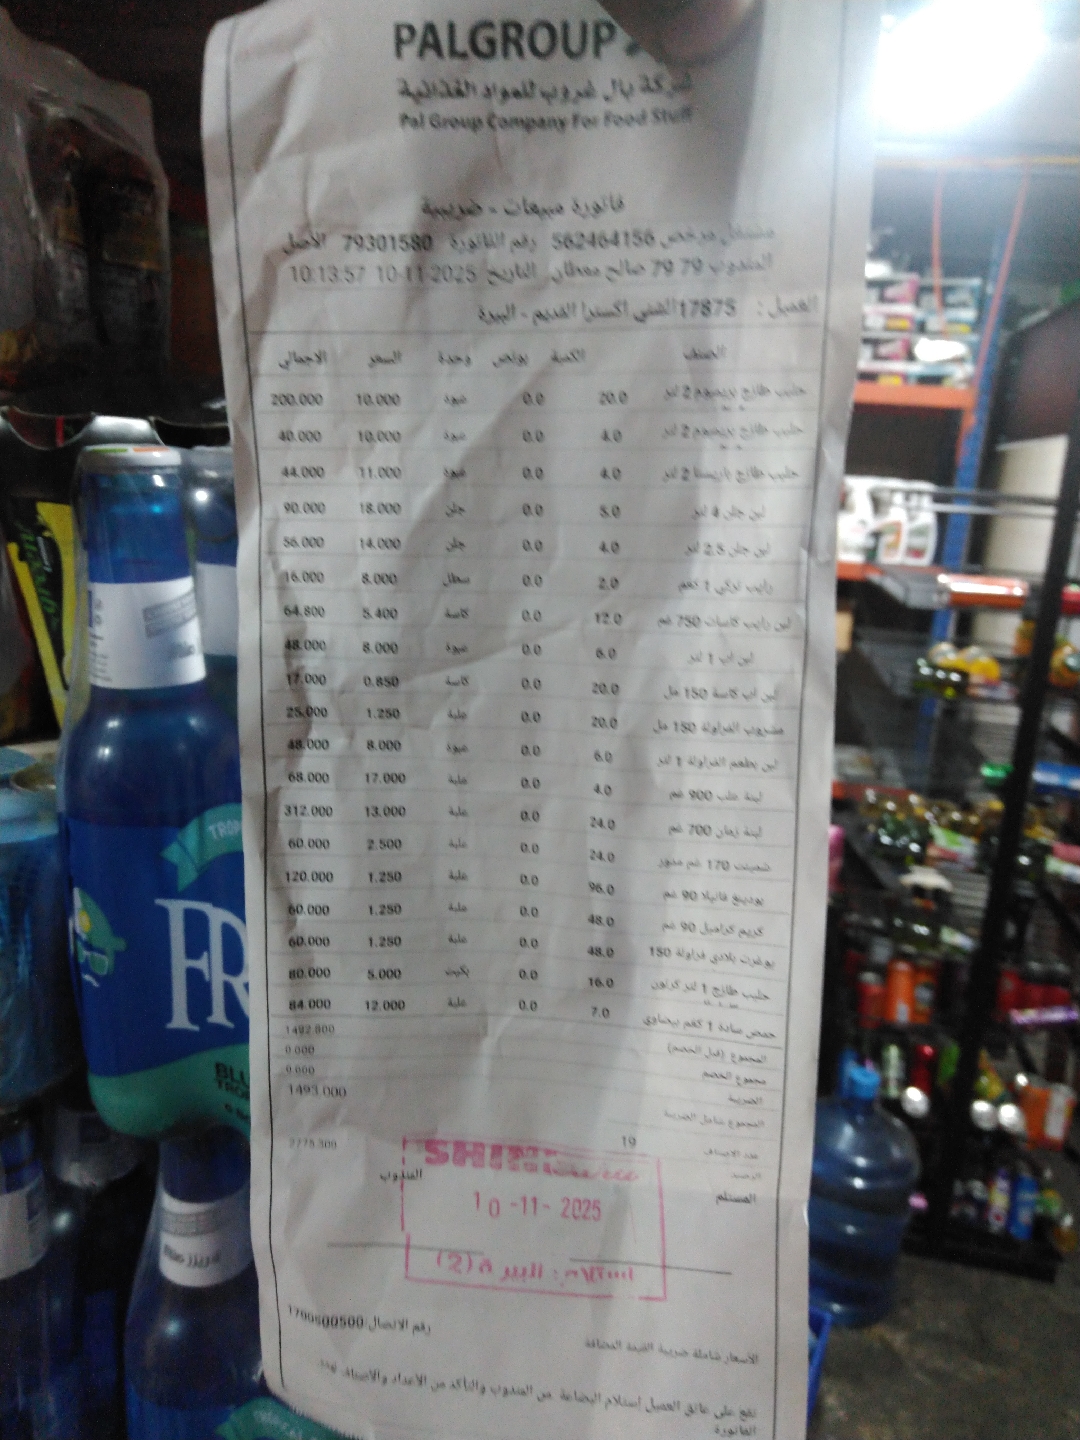 PALGROUP
شركة بال غروب للمواد الغذائية
Pal Group Company For Food Stuff
فاتورة مبيعات - ضريبية
مشتغل مرخص 562464156 رقم الفاتورة 79301580 الأصل
المندوب 79 79 صالح معطان التاريخ 10-11-2025 10:13:57
العميل : 17875 الشني اكسترا القديم - البيرة
الصنف الكمية بونص وحدة السعر الاجمالي
حليب طازج بريميوم 2 لتر 20.0 0.0 عبوة 10.000 200.000
حليب طازج بريميوم 2 لتر 4.0 0.0 عبوة 10.000 40.000
حليب طازج باريستا 2 لتر 4.0 0.0 عبوة 11.000 44.000
لبن جلن 4 لتر 5.0 0.0 جلن 18.000 90.000
لبن جلن 2.5 لتر 4.0 0.0 جلن 14.000 56.000
رايب تركي 1 كغم 2.0 0.0 سطل 8.000 16.000
لبن رايب كاسات 750 غم 12.0 0.0 كاسة 5.400 64.800
لبن اب 1 لتر 6.0 0.0 عبوة 8.000 48.000
لبن اب كاسة 150 مل 20.0 0.0 كاسة 0.850 17.000
مشروب الفراولة 150 مل 20.0 0.0 علبة 1.250 25.000
لبن بطعم الفراولة 1 لتر 6.0 0.0 عبوة 8.000 48.000
لبنة علب 900 غم 4.0 0.0 علبة 17.000 68.000
لبنة زمان 700 غم 24.0 0.0 علبة 13.000 312.000
شمينت 170 غم مدور 24.0 0.0 علبة 2.500 60.000
بودينغ فانيلا 90 غم 96.0 0.0 علبة 1.250 120.000
كريم كراميل 90 غم 48.0 0.0 علبة 1.250 60.000
يوغرت بلادي فراولة 150 48.0 0.0 علبة 1.250 60.000
حليب طازج 1 لتر كرتون 16.0 0.0 بكيت 5.000 80.000
حمص سادة 1 كغم بيضاوي 7.0 0.0 علبة 12.000 84.000
المجموع (قبل الخصم) 1492.800
مجموع الخصم 0.000
الضريبة 0.000
المجموع شامل الضريبة 1493.000
عدد الاصناف 19
الرصيد 2775.300
المستلم المندوب
10-11-2025
استلام: البيرة (2)
رقم الاتصال: 1700500500
الأسعار شاملة ضريبة القيمة المضافة
تقع على عاتق العميل إستلام البضاعة من المندوب والتأكد من الأعداد والأصناف
الفاتورة
TROP
FR
BLU
TRO